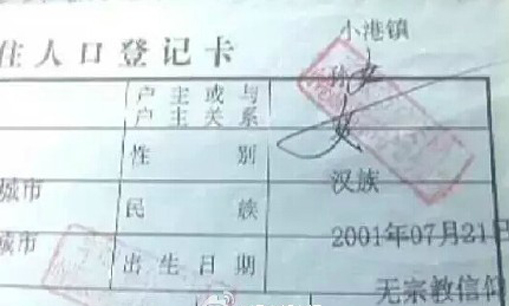 小港镇
住人口登记卡
户主或与
户主关系
孙女
性别
女
汉族
城市
民族
2001年07月21日
城市
出生日期
无宗教信仰